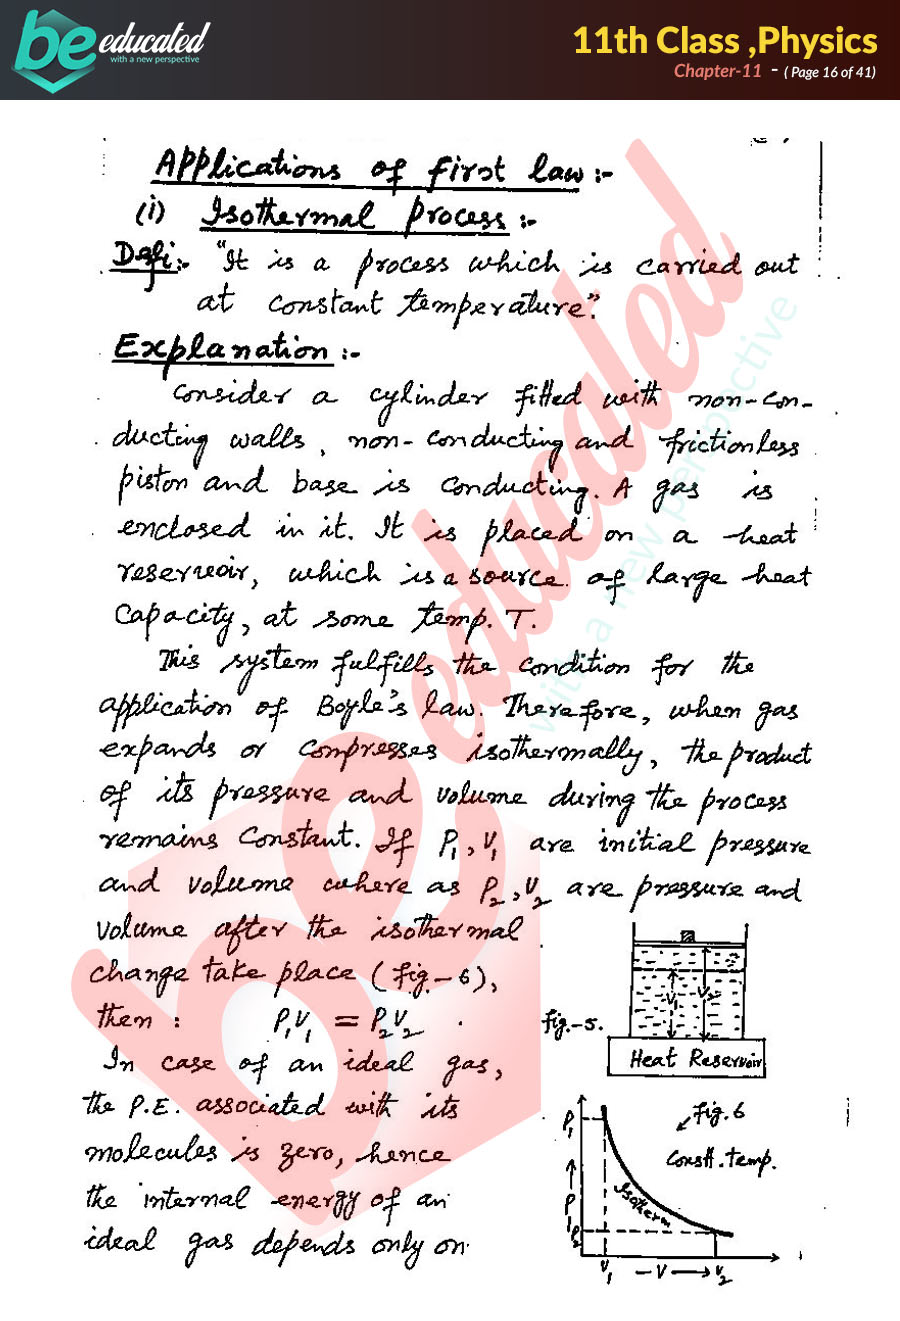 be educated
with a new perspective
11th Class ,Physics
Chapter-11 - ( Page 16 of 41)
Applications of first law :-
(i) Isothermal process :-
Defi:- "It is a process which is carried out
at constant temperature".
Explanation :-
Consider a cylinder fitted with non-con-
ducting walls, non-conducting and frictionless
piston and base is conducting. A gas is
enclosed in it. It is placed on a heat
reservoir, which is a source of large heat
capacity, at some temp. T.
This system fulfills the condition for the
application of Boyle's law. Therefore, when gas
expands or compresses isothermally, the product
of its pressure and volume during the process
remains constant. If P₁, V₁ are initial pressure
and volume where as P₂, V₂ are pressure and
volume after the isothermal
change take place (fig.-6),
then : P₁V₁ = P₂V₂ .
In case of an ideal gas,
the P.E. associated with its
molecules is zero, hence
the internal energy of an
ideal gas depends only on
V₁
V₂
fig.-5.
Heat Reservoir
fig.6
Constt. temp.
P₁
P
P₂
Isotherm
V₁ - V → V₂
be educated
with a new perspective